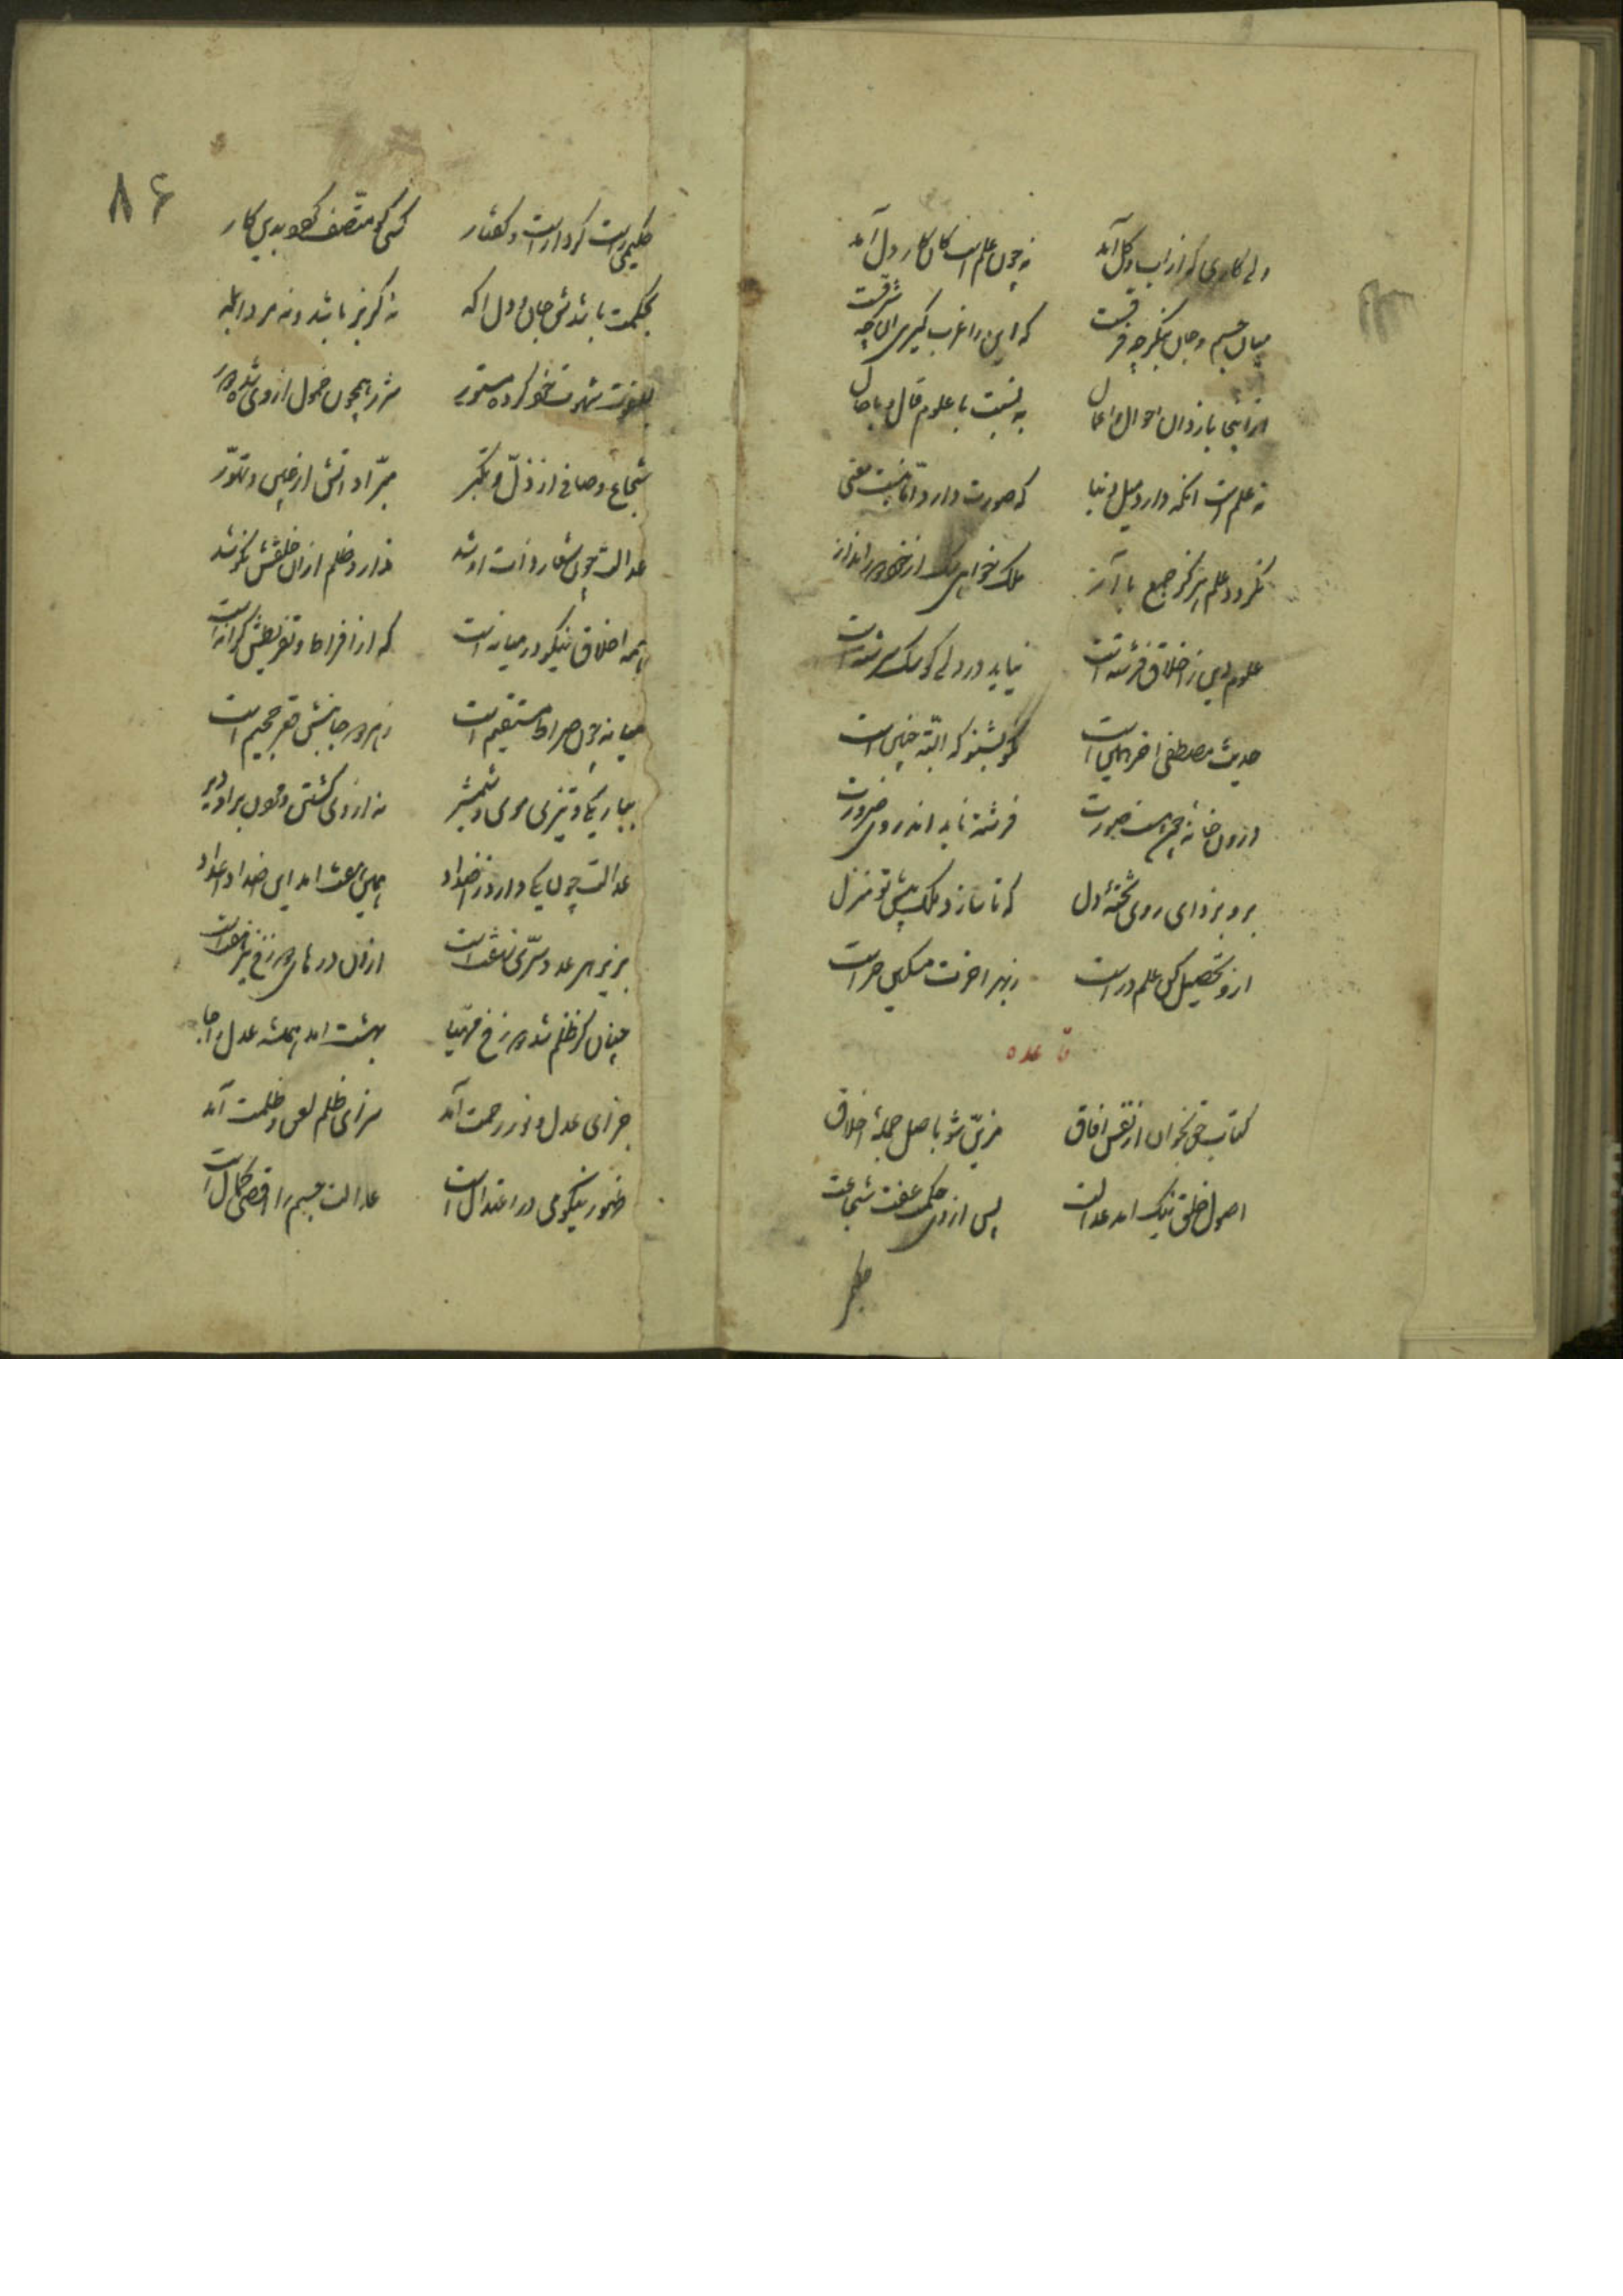 ولی کاری که از آب و گل آید نه چون علم است کان کار دل آید
میان جسم و جان بنگر چه فرقست که این را غرب گیری آن چه شرقست
از اینجا باز دان احوال و اعمال به نسبت با علوم قال و با حال
نه علم است انکه دارد میل دنیا که صورت دارد اما نیست معنی
نگردد علم هرگز جمع با آز ملک خواهی سگ از خود دور انداز
علوم دین ز اخلاق فرشته است نیاید در دلی کو سگ سرشته است
حدیث مصطفی اخر همین است نکو بشنو که البته چنین است
درون خانه چون هست صورت فرشته ناید اندر وی ضرورت
برو بزدای روی تخته دل که تا سازد ملک پیش تو منزل
ازو تحصیل کن علم وراثت ز بهر اخرت میکن حراثت
قاعده
کتاب حق بخوان از نفس و افاق مزین شو باصل جمله اخلاق
اصول خلق نیک امد عدالت پس از وی حکمت و عفت شجاعت
حکیمی
۸۶
حکیمی راست کردارست و گفتار کسی کو متصف گردد بدین کار
بحکمت باشدش جان و دل اگه نه گربز باشد و نه مرد ابله
بعفت شهوت خود کرده مستور شره همچون خمول از وی شده دور
شجاع و صافی از ذل و تکبر مبرا ذاتش از جبن و تهور
عدالت چون شعار ذات او شد ندارد ظلم از ان خلقش نکو شد
همه اخلاق نیکو در میانه است که از افراط و تفریطش کرانه است
میانه چون صراط مستقیم است ز هر دو جانبش قعر جحیم است
بباریکی و تیزی موی و شمشیر نه از وی گشتن و بودن برو دیر
عدالت چون یکی دارد ز اضداد همین هفت امد این اضداد اعداد
بزیر هر عدد سری نهفت است از ان درهای دوزخ نیز هفت است
چنان کز ظلم شد دوزخ مهیا بهشت امد همیشه عدل را جا
جزای عدل و نور رحمت آمد سزای ظلم لعن و ظلمت آمد
ظهور نیکویی در اعتدال است عدالت جسم را اقصی کمال است